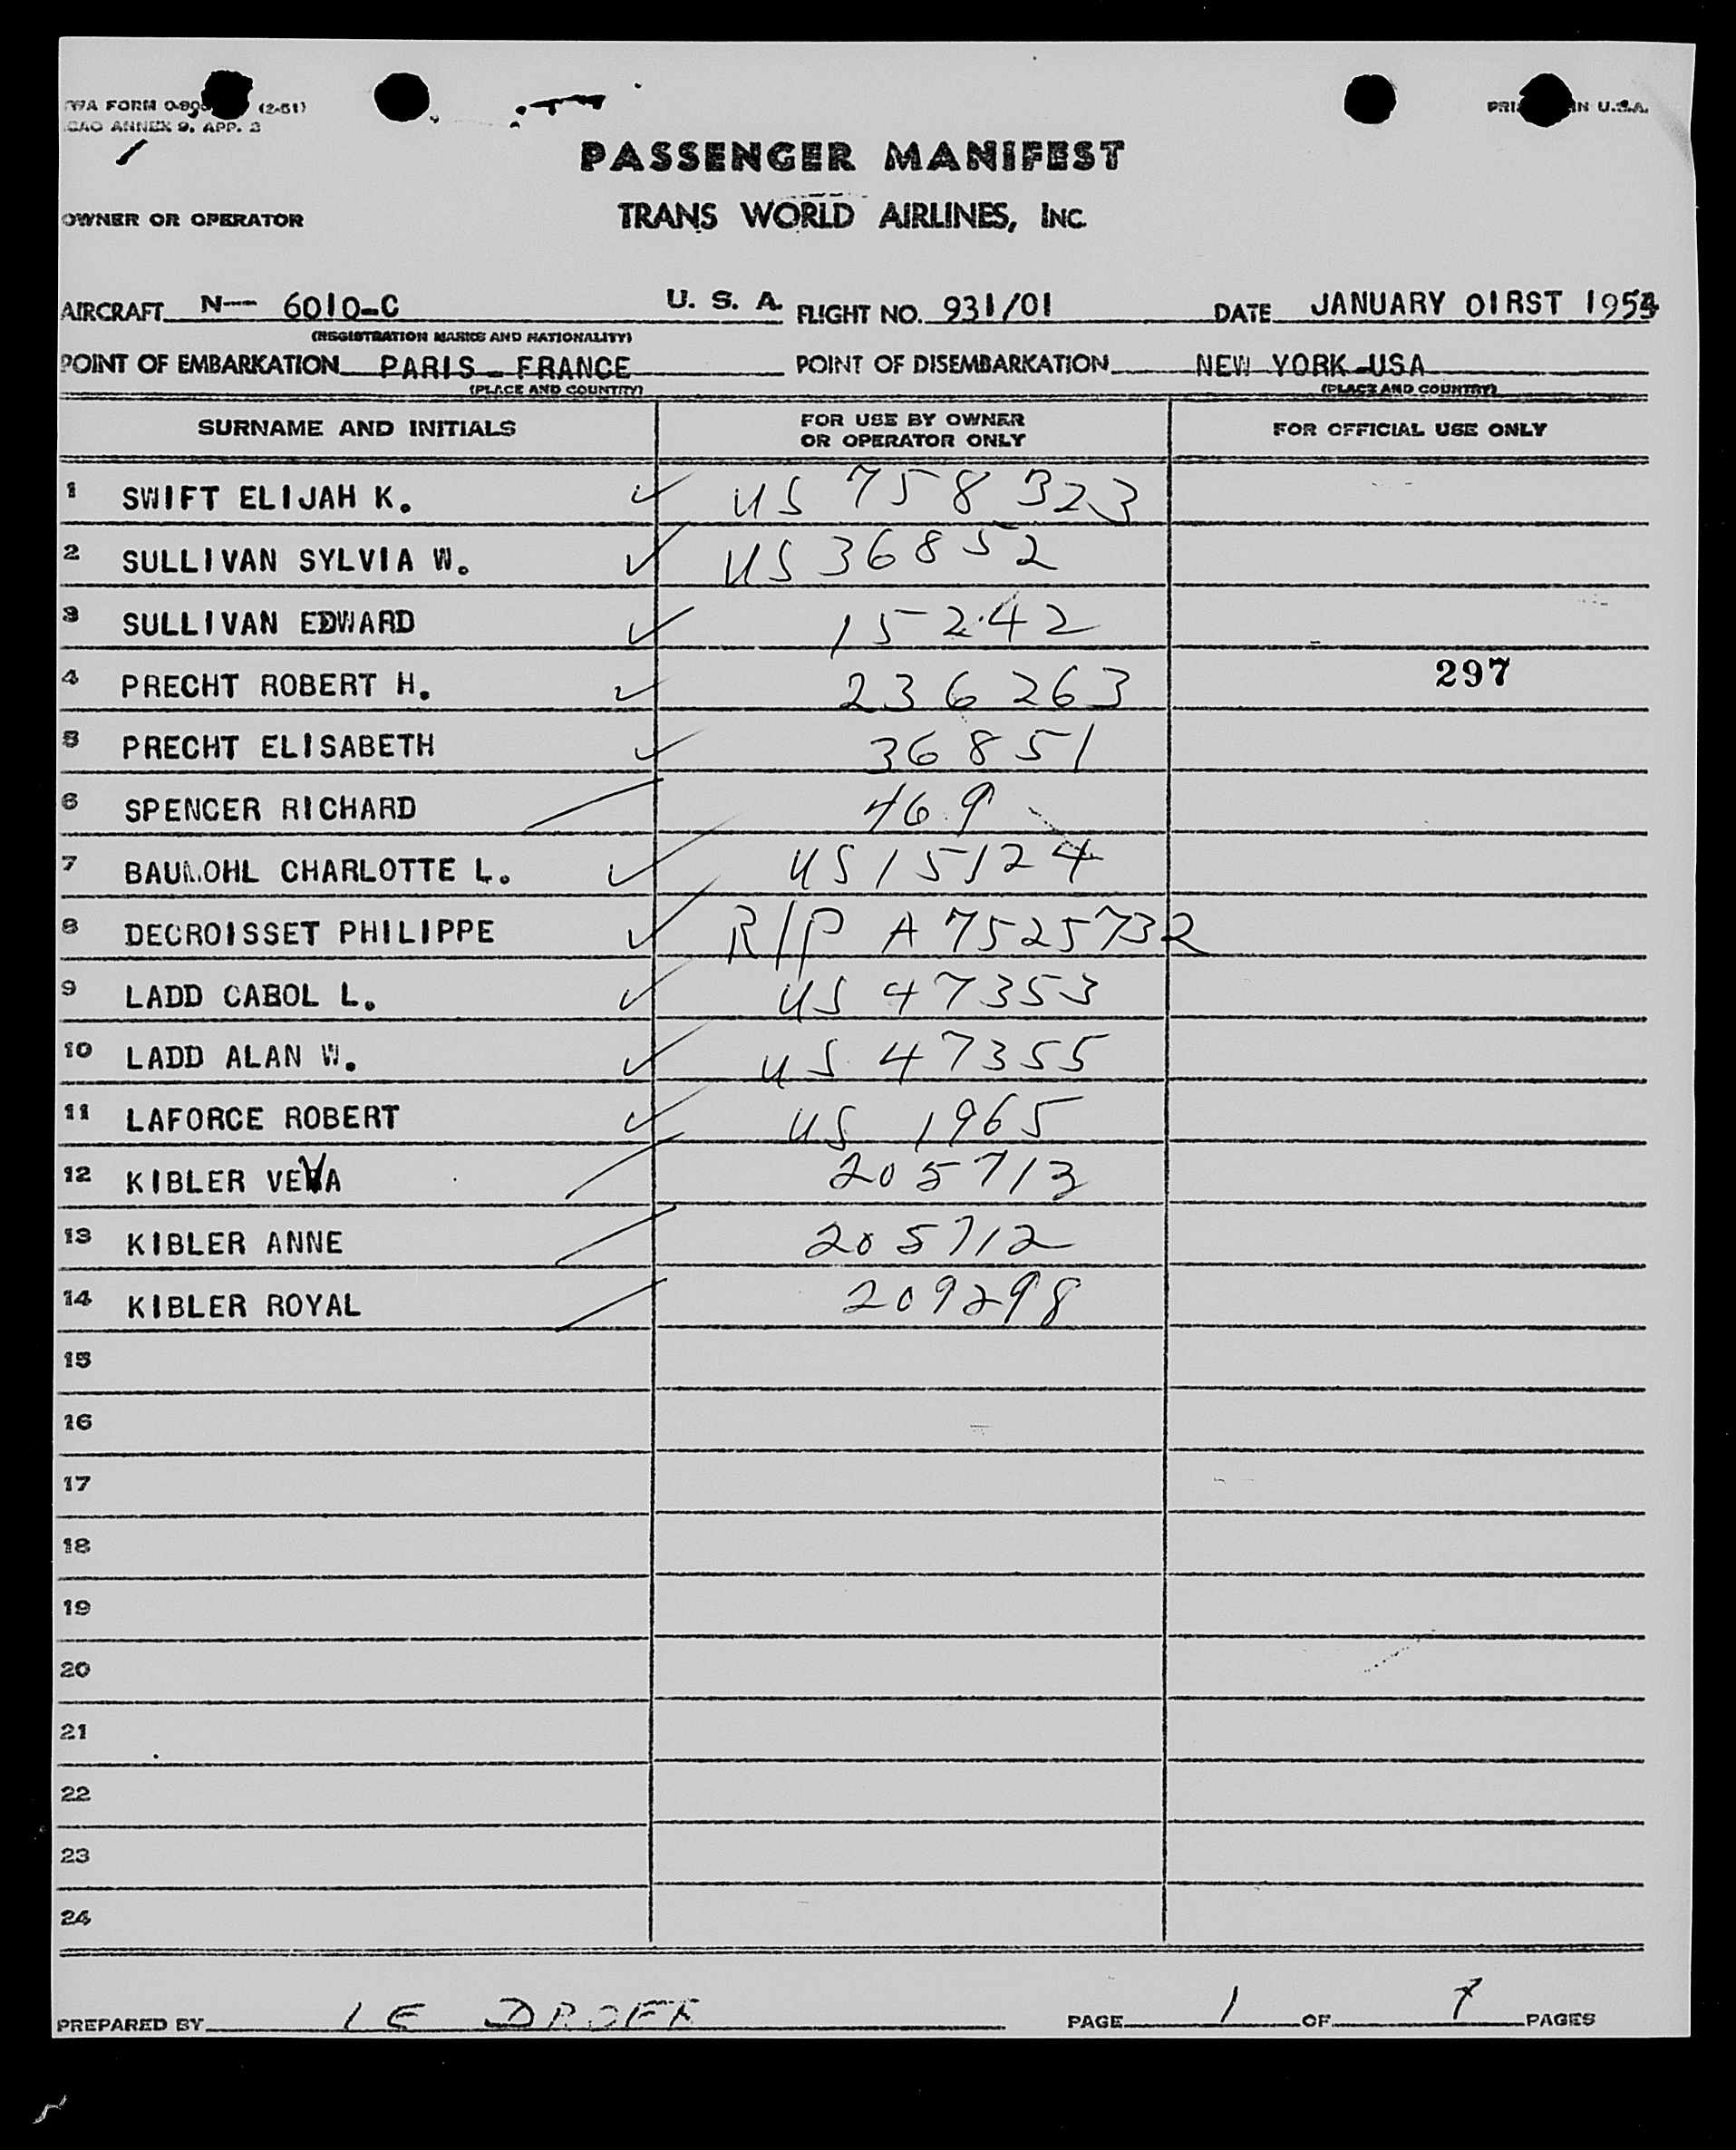 TWA FORM (2-51) PRI IN U.S.A.
ICAO ANNEX 9, APP. 2
PASSENGER MANIFEST
OWNER OR OPERATOR TRANS WORLD AIRLINES, INC.
AIRCRAFT N-- 6010-C U. S. A. FLIGHT NO. 931/01 DATE JANUARY 01RST 1954
(REGISTRATION MARKS AND NATIONALITY)
POINT OF EMBARKATION PARIS - FRANCE POINT OF DISEMBARKATION NEW YORK-USA
(PLACE AND COUNTRY) (PLACE AND COUNTRY)
SURNAME AND INITIALS FOR USE BY OWNER OR OPERATOR ONLY FOR OFFICIAL USE ONLY
1 SWIFT ELIJAH K. ✓ US 758323
2 SULLIVAN SYLVIA W. ✓ US 36852
3 SULLIVAN EDWARD ✓ 15242
4 PRECHT ROBERT H. ✓ 236263 297
5 PRECHT ELISABETH ✓ 36851
6 SPENCER RICHARD 469
7 CHARLOTTE L. ✓ US 15124
8 DECROISSET PHILIPPE ✓ R/P A 7525732
9 LADD CAROL L. ✓ US 47353
10 LADD ALAN W. ✓ US 47355
11 LAFORCE ROBERT ✓ US 1965
12 KIBLER 205713
13 KIBLER ANNE 205712
14 KIBLER ROYAL 209298
15
16
17
18
19
20
21
22
23
24
PREPARED BY LE PAGE 1 OF 7 PAGES